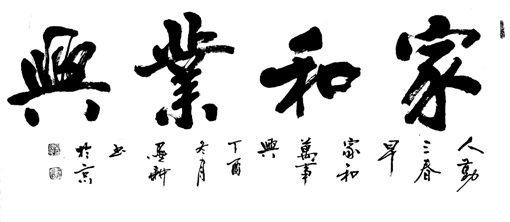 家和業興
人勤
三春
早
家和
萬事
興
丁酉
冬月
書
於京